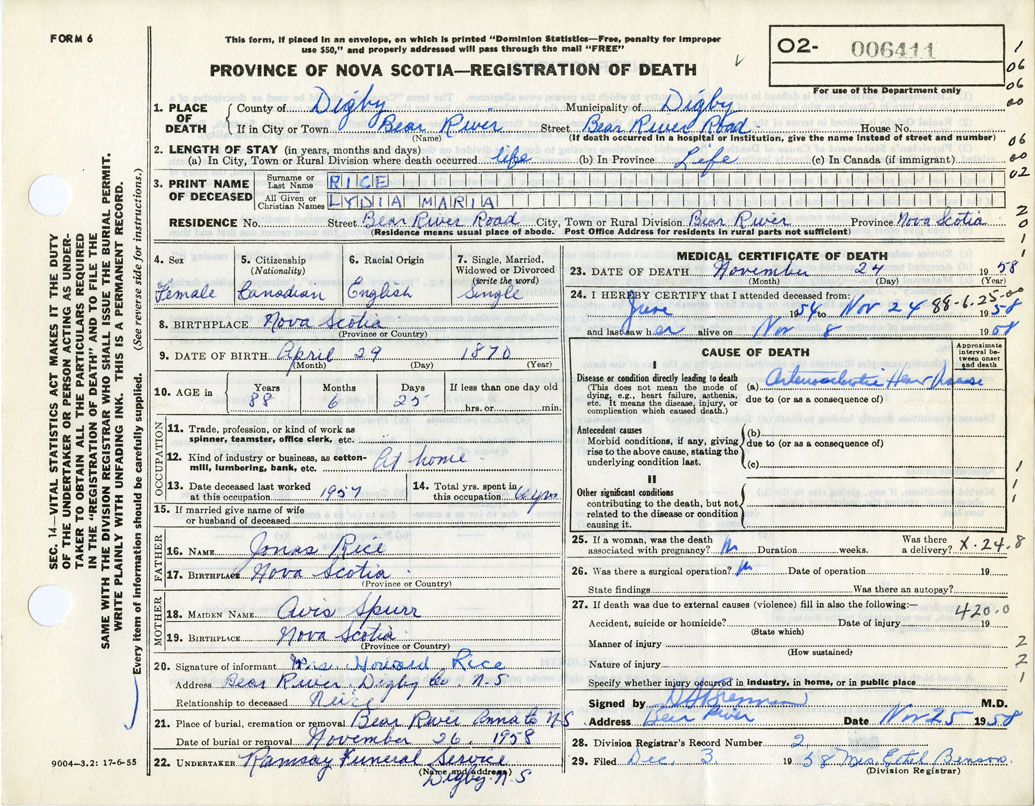 FORM 6
This form, if placed in an envelope, on which is printed "Dominion Statistics—Free, penalty for improper
use $50," and properly addressed will pass through the mail "FREE"
PROVINCE OF NOVA SCOTIA—REGISTRATION OF DEATH
02- 006411
For use of the Department only
1. PLACE OF DEATH
County of Digby Municipality of Digby
If in City or Town Bear River Street Bear River Road House No.
(Name) (If death occurred in a hospital or institution, give the name instead of street and number)
2. LENGTH OF STAY (in years, months and days)
(a) In City, Town or Rural Division where death occurred life (b) In Province Life (c) In Canada (if immigrant)
3. PRINT NAME OF DECEASED
Surname or Last Name RICE
All Given or Christian Names LYDIA MARIA
RESIDENCE No. Street Bear River Road City, Town or Rural Division Bear River Province Nova Scotia
(Residence means usual place of abode. Post Office Address for residents in rural parts not sufficient)
4. Sex Female
5. Citizenship (Nationality) Canadian
6. Racial Origin English
7. Single, Married, Widowed or Divorced (write the word) Single
8. BIRTHPLACE Nova Scotia
(Province or Country)
9. DATE OF BIRTH April 29 1870
(Month) (Day) (Year)
10. AGE in Years 88 Months 6 Days 25 If less than one day old hrs. or min.
OCCUPATION
11. Trade, profession, or kind of work as spinner, teamster, office clerk, etc.
12. Kind of industry or business, as cotton-mill, lumbering, bank, etc. At home
13. Date deceased last worked at this occupation 1957
14. Total yrs. spent in this occupation 60 yrs
15. If married give name of wife or husband of deceased
FATHER
16. NAME Jonas Rice
17. BIRTHPLACE Nova Scotia
(Province or Country)
MOTHER
18. MAIDEN NAME Avis Spurr
19. BIRTHPLACE Nova Scotia
(Province or Country)
20. Signature of informant Mrs. Howard Rice
Address Bear River, Digby Co. N.S
Relationship to deceased Neice
21. Place of burial, cremation or removal Bear River Anna Co N.S
Date of burial or removal November 26, 1958
22. UNDERTAKER Ramsay Funeral Service
(Name and address)
Digby. N.S
MEDICAL CERTIFICATE OF DEATH
23. DATE OF DEATH November 24 1958
(Month) (Day) (Year)
24. I HEREBY CERTIFY that I attended deceased from:
June 1954 to Nov 24 88-6-25-00 1958
and last saw her alive on Nov 8 1958
CAUSE OF DEATH
Approximate interval between onset and death
I
Disease or condition directly leading to death
(This does not mean the mode of dying, e.g., heart failure, asthenia, etc. It means the disease, injury, or complication which caused death.)
(a) Arteriosclerotic Heart Disease
due to (or as a consequence of)
Antecedent causes
Morbid conditions, if any, giving rise to the above cause, stating the underlying condition last.
(b)
due to (or as a consequence of)
(c)
II
Other significant conditions
contributing to the death, but not related to the disease or condition causing it.
25. If a woman, was the death associated with pregnancy? Duration weeks. Was there a delivery? X-24.8
26. Was there a surgical operation? Date of operation 19
State findings Was there an autopsy?
27. If death was due to external causes (violence) fill in also the following:—
420.0
Accident, suicide or homicide? Date of injury 19
(State which)
Manner of injury
(How sustained)
Nature of injury
Specify whether injury occurred in industry, in home, or in public place
Signed by M.D.
Address Bear River Date Nov 25 1958
28. Division Registrar's Record Number 2
29. Filed Dec. 3 1958 Mrs. Ethel Benson.
(Division Registrar)
SEC. 14—VITAL STATISTICS ACT MAKES IT THE DUTY
OF THE UNDERTAKER OR PERSON ACTING AS UNDER-
TAKER TO OBTAIN ALL THE PARTICULARS REQUIRED
IN THE "REGISTRATION OF DEATH" AND TO FILE THE
SAME WITH THE DIVISION REGISTRAR WHO SHALL ISSUE THE BURIAL PERMIT.
WRITE PLAINLY WITH UNFADING INK. THIS IS A PERMANENT RECORD.
Every item of information should be carefully supplied. (See reverse side for instructions.)
9004—3.2: 17-6-55
1
06
06
00
06
00
02
2
0
1
1
1
1
2
2
1